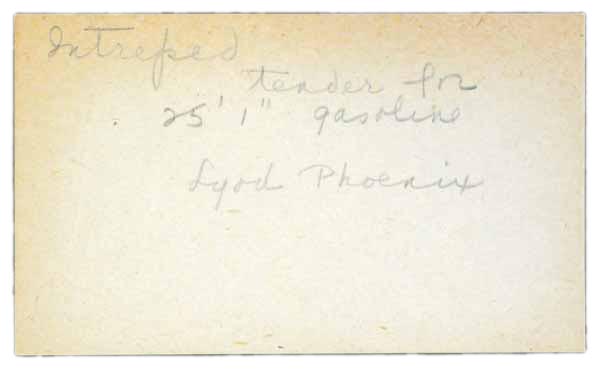 Intreped
tender for
25' 1" gasoline
Lyod Phoenix